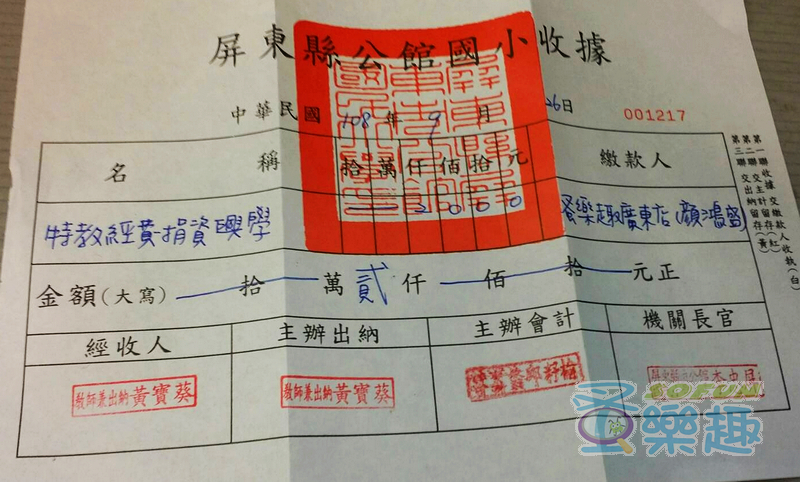 屏東縣公館國小收據
中華民國 108 年 9 月 26日 001217
名稱 拾萬仟佰拾元 繳款人
特教經費-捐資興學 2000 蚤樂趣廣東店(顏鴻盛)
金額(大寫) 拾 萬 貳 仟 佰 拾 元正
經收人 主辦出納 主辦會計 機關長官
教師兼出納黃寶葵 教師兼出納黃寶葵
第一聯收據交繳款人收執(白)
第二聯交主計留存(紅)
第三聯交出納留存(黃)
SOFUN
蚤樂趣